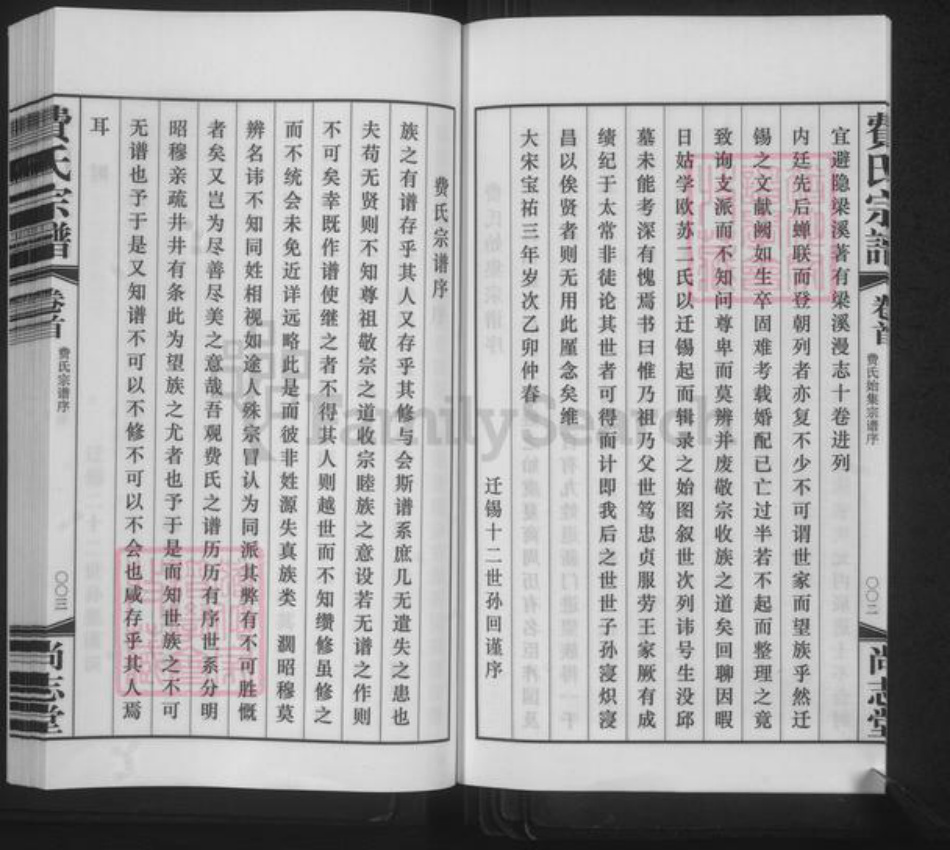 費氏宗譜
卷首
费氏始集宗谱序
〇〇二
尚志堂
宜避隐梁溪著有梁溪漫志十卷进列
内廷先后蝉联而登朝列者亦复不少不可谓世家而望族乎然迁
锡之文献阙如生卒固难考载婚配已亡过半若不起而整理之竟
致询支派而不知问尊卑而莫辨并废敬宗收族之道矣回聊因暇
日姑学欧苏二氏以迁锡起而辑录之始图叙世次列讳号生没邱
墓未能考深有愧焉书曰惟乃祖乃父世笃忠贞服劳王家厥有成
绩纪于太常非徒论其世者可得而计即我后之世世子孙寖炽寖
昌以俟贤者则无用此厪念矣维
大宋宝祐三年岁次乙卯仲春
迁锡十二世孙回谨序
费氏宗谱序
族之有谱存乎其人又存乎其修与会斯谱系庶几无遗失之患也
夫苟无贤则不知尊祖敬宗之道收宗睦族之意设若无谱之作则
不可矣幸既作谱使继之者不得其人则越世而不知缵修虽修之
而不统会未免近详远略此是而彼非姓源失真族类 潤昭穆莫
辨名讳不知同姓相视如途人殊宗冒认为同派其弊有不可胜慨
者矣又岂为尽善尽美之意哉吾观费氏之谱历历有序世系分明
昭穆亲疏井井有条此为望族之尤者也予于是而知世族之不可
无谱也予于是又知谱不可以不修不可以不会也咸存乎其人焉
耳
費氏宗譜
卷首
费氏宗谱序
〇〇三
尚志堂
FamilySearch